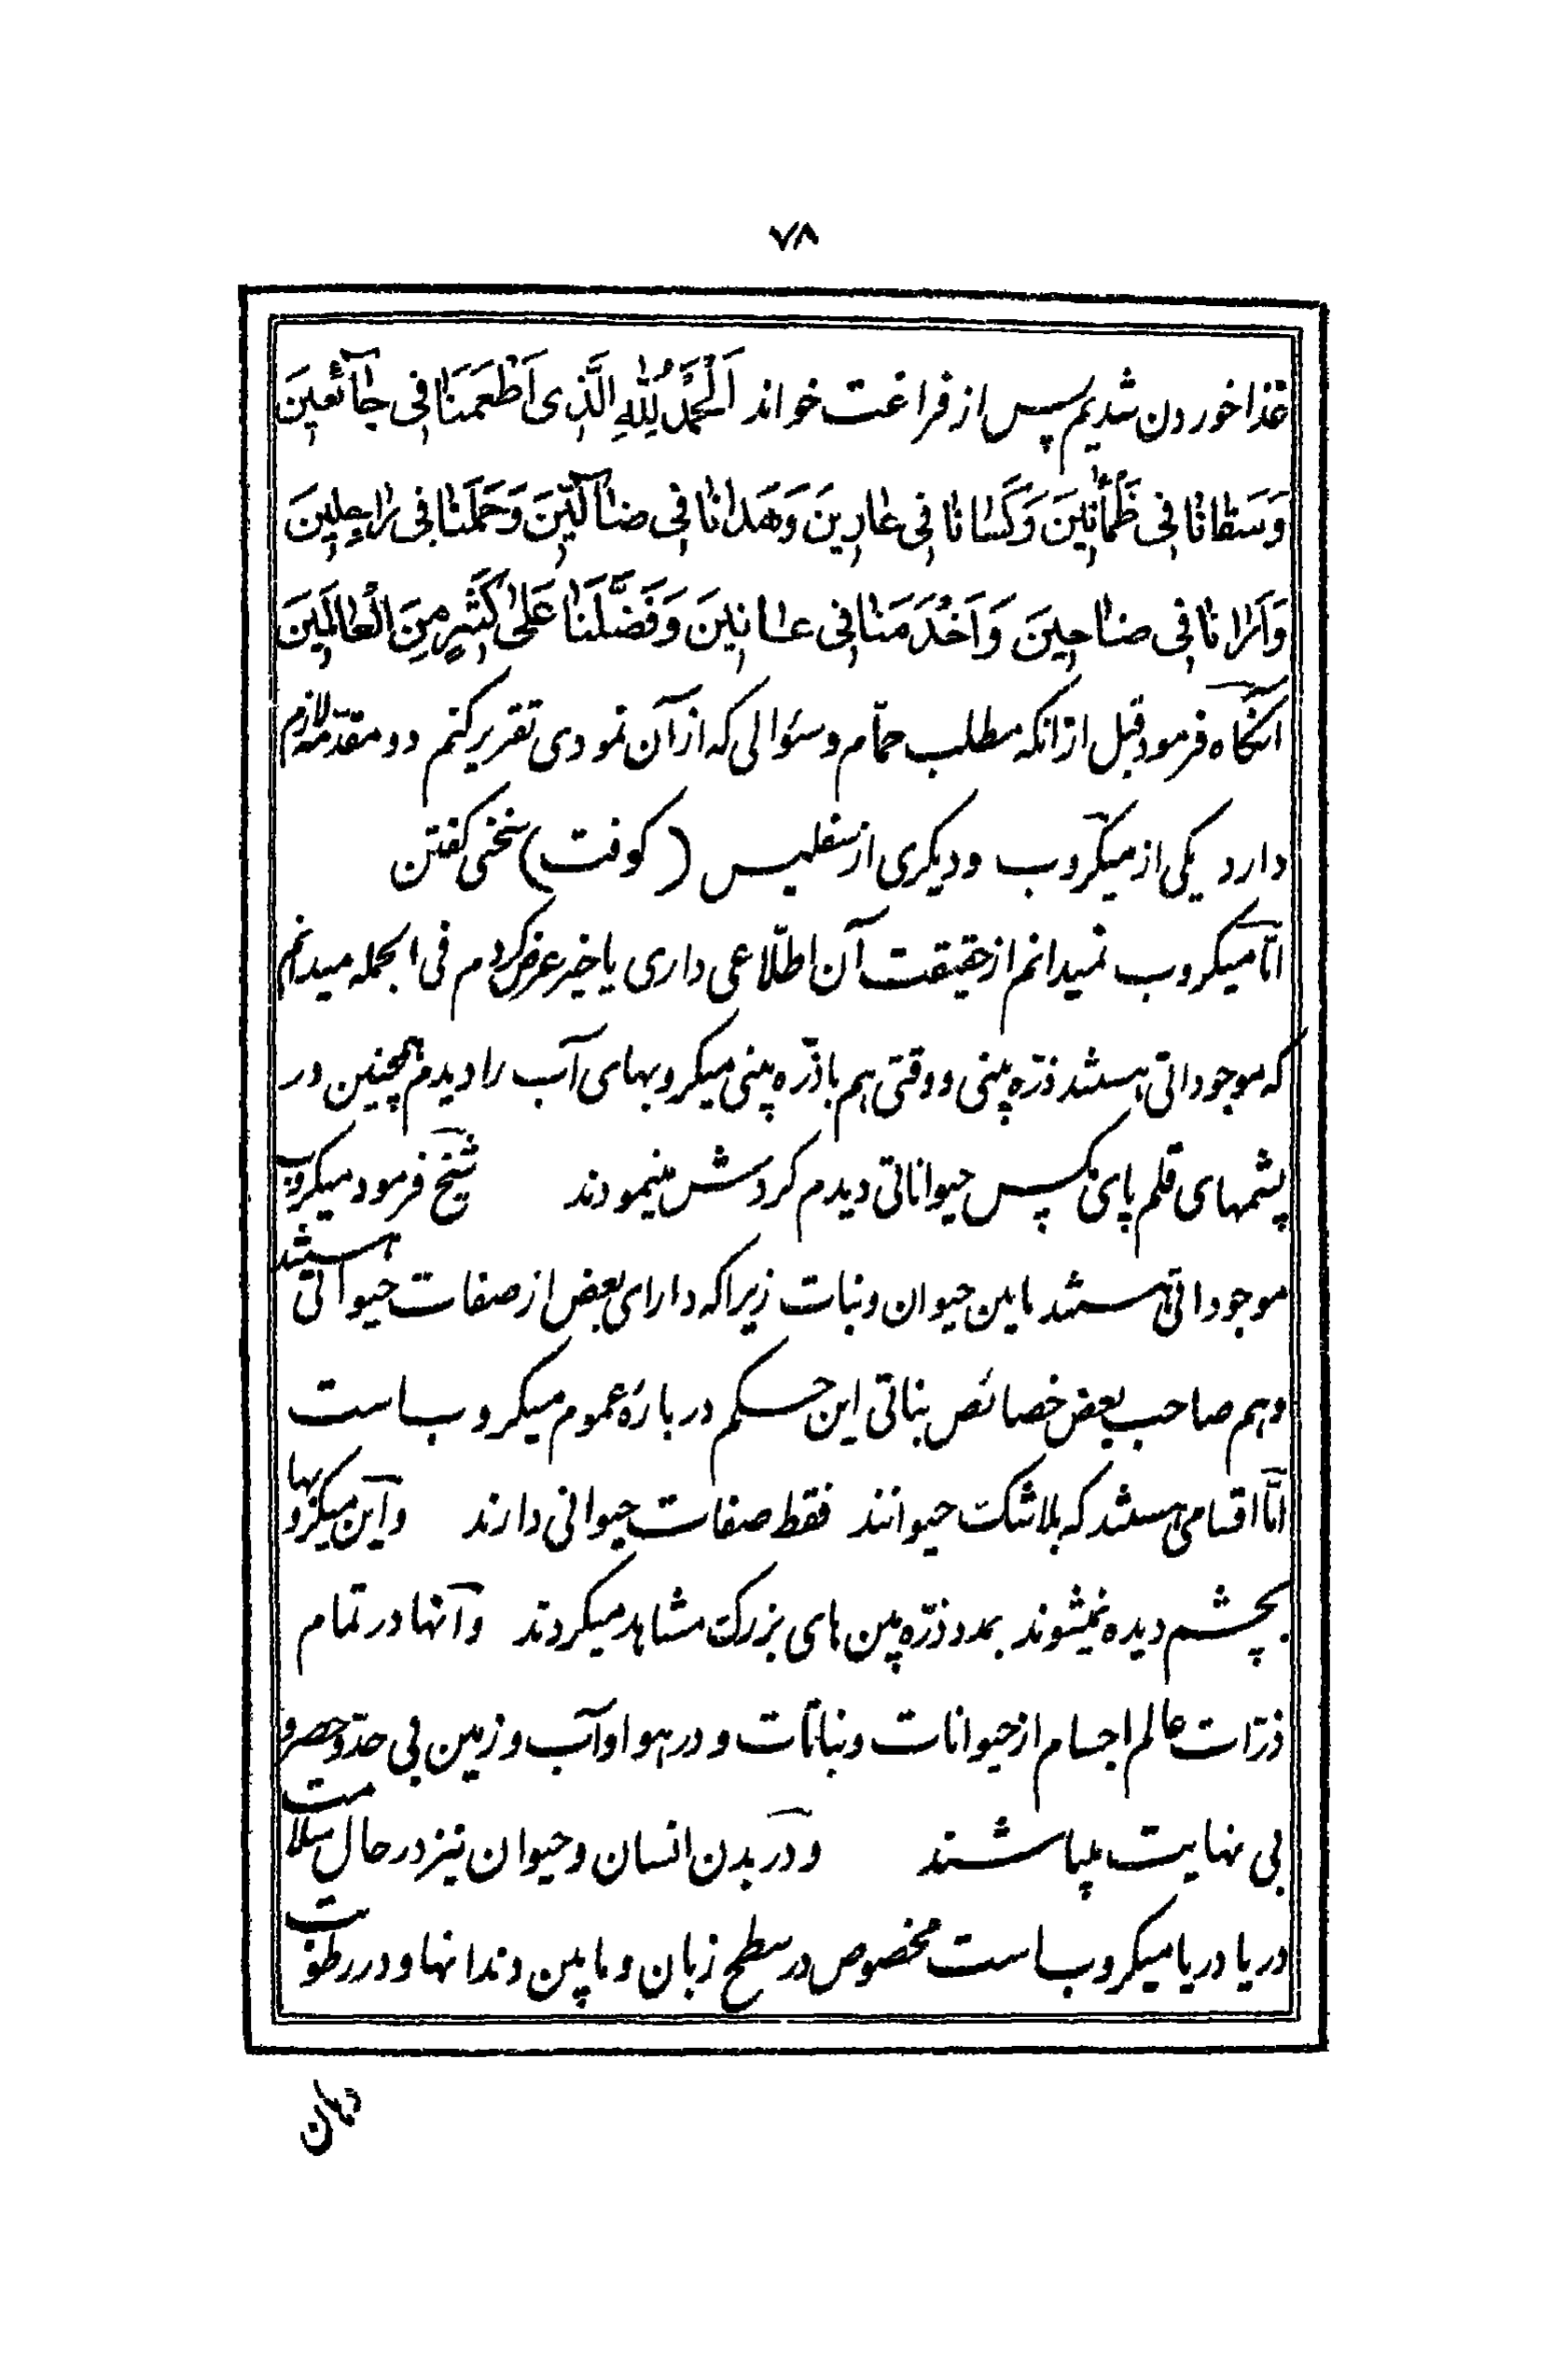 ۷۸
غذا خوردن شدیم سپس از فراغت خواند اَلْحَمْدُ لِلّٰهِ الَّذی اَطْعَمَنَا فِی جٰآئِعِینَ
وَسَقٰانٰا فِی ظَمْاٰنِینَ وَکَسٰانٰا فِی عٰارِینَ وَهَدٰانٰا فِی ضٰآلّینَ وَحَمَلَنٰا فِی رٰاجِلِینَ
وَآوٰانٰا فِی ضٰاحِینَ وَاَخْدَمَنٰا فِی عٰانِینَ وَفَضَّلَنٰا عَلیٰ کَثیرٍ مِنَ الْعٰالَمِینَ
آنکاه فرمود قبل از انکه مطلب حمّام و سئوالی که از آن نمودی تقریر کنم دو مقدّمه لازم
دارد یکی از میکروب و دیکری از سفلیس (کوفت) سخنی کفتن
امّا میکروب نمیدانم از حقیقت آن اطلّاعی داری یا خیر عرض کردم فی الجمله میدانم
که موجوداتی هستند ذرّه بینی و وقتی هم با ذرّه بینی میکروبهای آب را دیدم همچنین در
پشمهای قلم پای مکس حیواناتی دیدم کردش مینمودند شیخ فرمود میکروب
موجوداتی هستند مابین حیوان و نبات زیرا که دارای بعض از صفات حیواتی هستند
و هم صاحب بعض خصائص نباتی این حکم در بارهٔ عموم میکروب است
امّا اقسامی هستند که بلا شک حیوانند فقط صفات حیوانی دارند و این میکروبها
بچشم دیده نمیشوند بمدد ذرّه بین های بزرک مشاهد میکردند و آنها در تمام
ذرّات عالم اجسام از حیوانات و نباتات و در هوا و آب و زمین بی حدّ و حصر و
بی نهایت میباشند و در بدن انسان و حیوان نیز در حال سلامت
دریا دریا میکروب است مخصوص در سطح زبان و مابین دندانها و در رطوبت
دهان